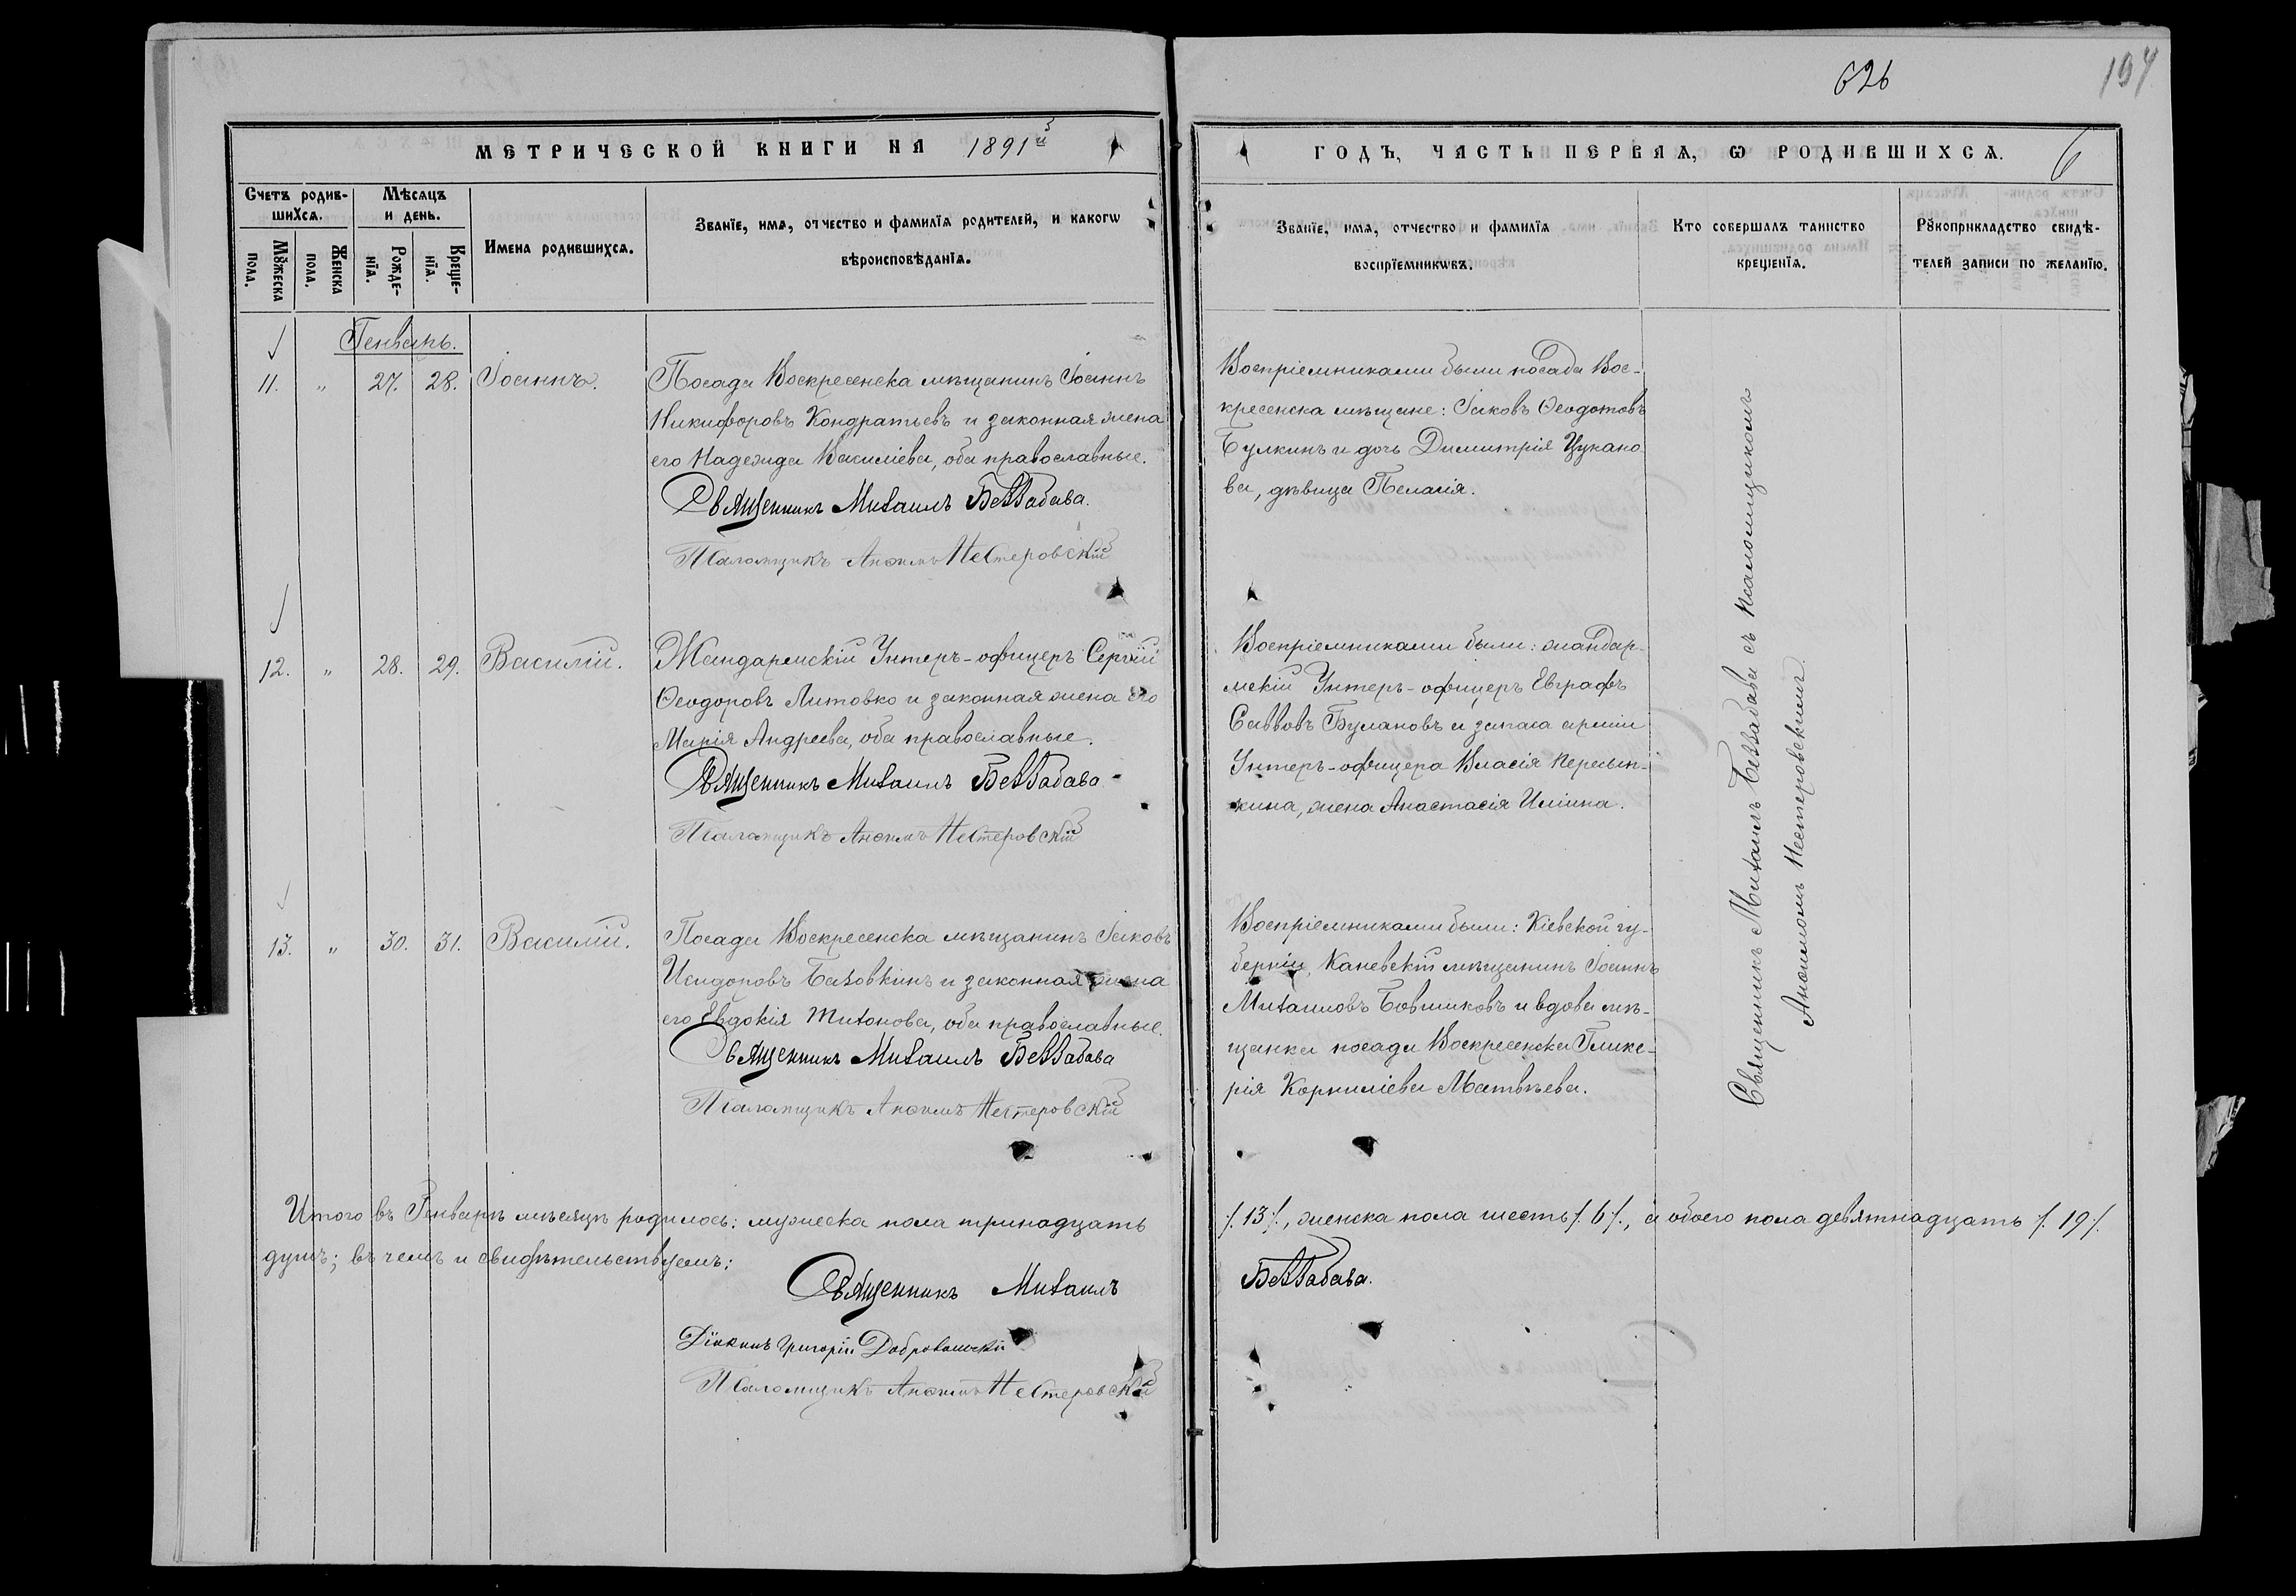 626
194
МЕТРИЧЕСКОЙ КНИГИ НА 1891й
ГОДЪ, ЧАСТЬ ПЕРВАЯ, Ѡ РОДИВШИХСЯ.
6
Счетъ родив-
шихся.
Мѣсяцъ
и день.
Мꙋжеска
пола.
Женска
пола.
Рожде-
нїя.
Креще-
нїя.
Имена родившихся.
Званїе, имя, отчество и фамилїя родителей, и какогѡ
вѣроисповѣданїя.
Званїе, имя, отчество и фамилїя
воспрїемникѡвъ.
Кто совершалъ таинство
крещенїя.
Рꙋкоприкладство свидѣ-
телей записи по желанїю.
Генварь.
11. " 27. 28. Іоаннъ.
Посада Воскресенска мѣщанинъ Іоаннъ
Никифоровъ Кондратьевъ и законная жена
его Надежда Василіева, оба православные.
Священникъ Михаилъ Беззабава.
Псаломщикъ Анѳимъ Нестеровскій
Воспріемниками были посада Вос-
кресенска мѣщане: Іаковъ Ѳеодотовъ
Булкинъ и дочь Димитрія Цукано
ва, дѣвица Пелагія.
12. " 28. 29. Василій.
Жандармскій Унтеръ-офицеръ Сергій
Ѳеодоровъ Литовко и законная жена его
Марія Андреева, оба православные.
Священникъ Михаилъ Беззабава
Псаломщикъ Анѳимъ Нестеровскій
Воспріемниками были: жандар-
мскій Унтеръ-офицеръ Евграфъ
Саввовъ Булановъ и запаса арміи
Унтеръ-офицера Власія
жена Анастасія Иліина.
13. " 30. 31. Василій.
Посада Воскресенска мѣщанинъ Іаковъ
Исидоровъ Базовкинъ и законная жена
его Евдокія Тихонова, оба православные.
Священникъ Михаилъ Беззабава
Псаломщикъ Анѳимъ Нестеровскій
Воспріемниками были: Кіевской гу-
берніи, Каневскій мѣщанинъ Іоаннъ
Михаиловъ Бовшиковъ и вдова мѣ-
щанка посада Воскресенска Глике-
рія Корниліева Матвѣева.
Священникъ Михаилъ Беззабава съ псаломщикомъ
Анѳимомъ Нестеровскимъ
Итого въ Генварѣ мѣсяцѣ родилось: мужеска пола тринадцать
/. 13 /., женска пола шесть /. 6 /., а обоего пола девятнадцать /. 19 /.
душъ; въ чемъ и свидѣтельствуемъ:
Священникъ Михаилъ
Беззабава.
Діаконъ Григорій Добровольскій
Псаломщикъ Анѳимъ Нестеровскій